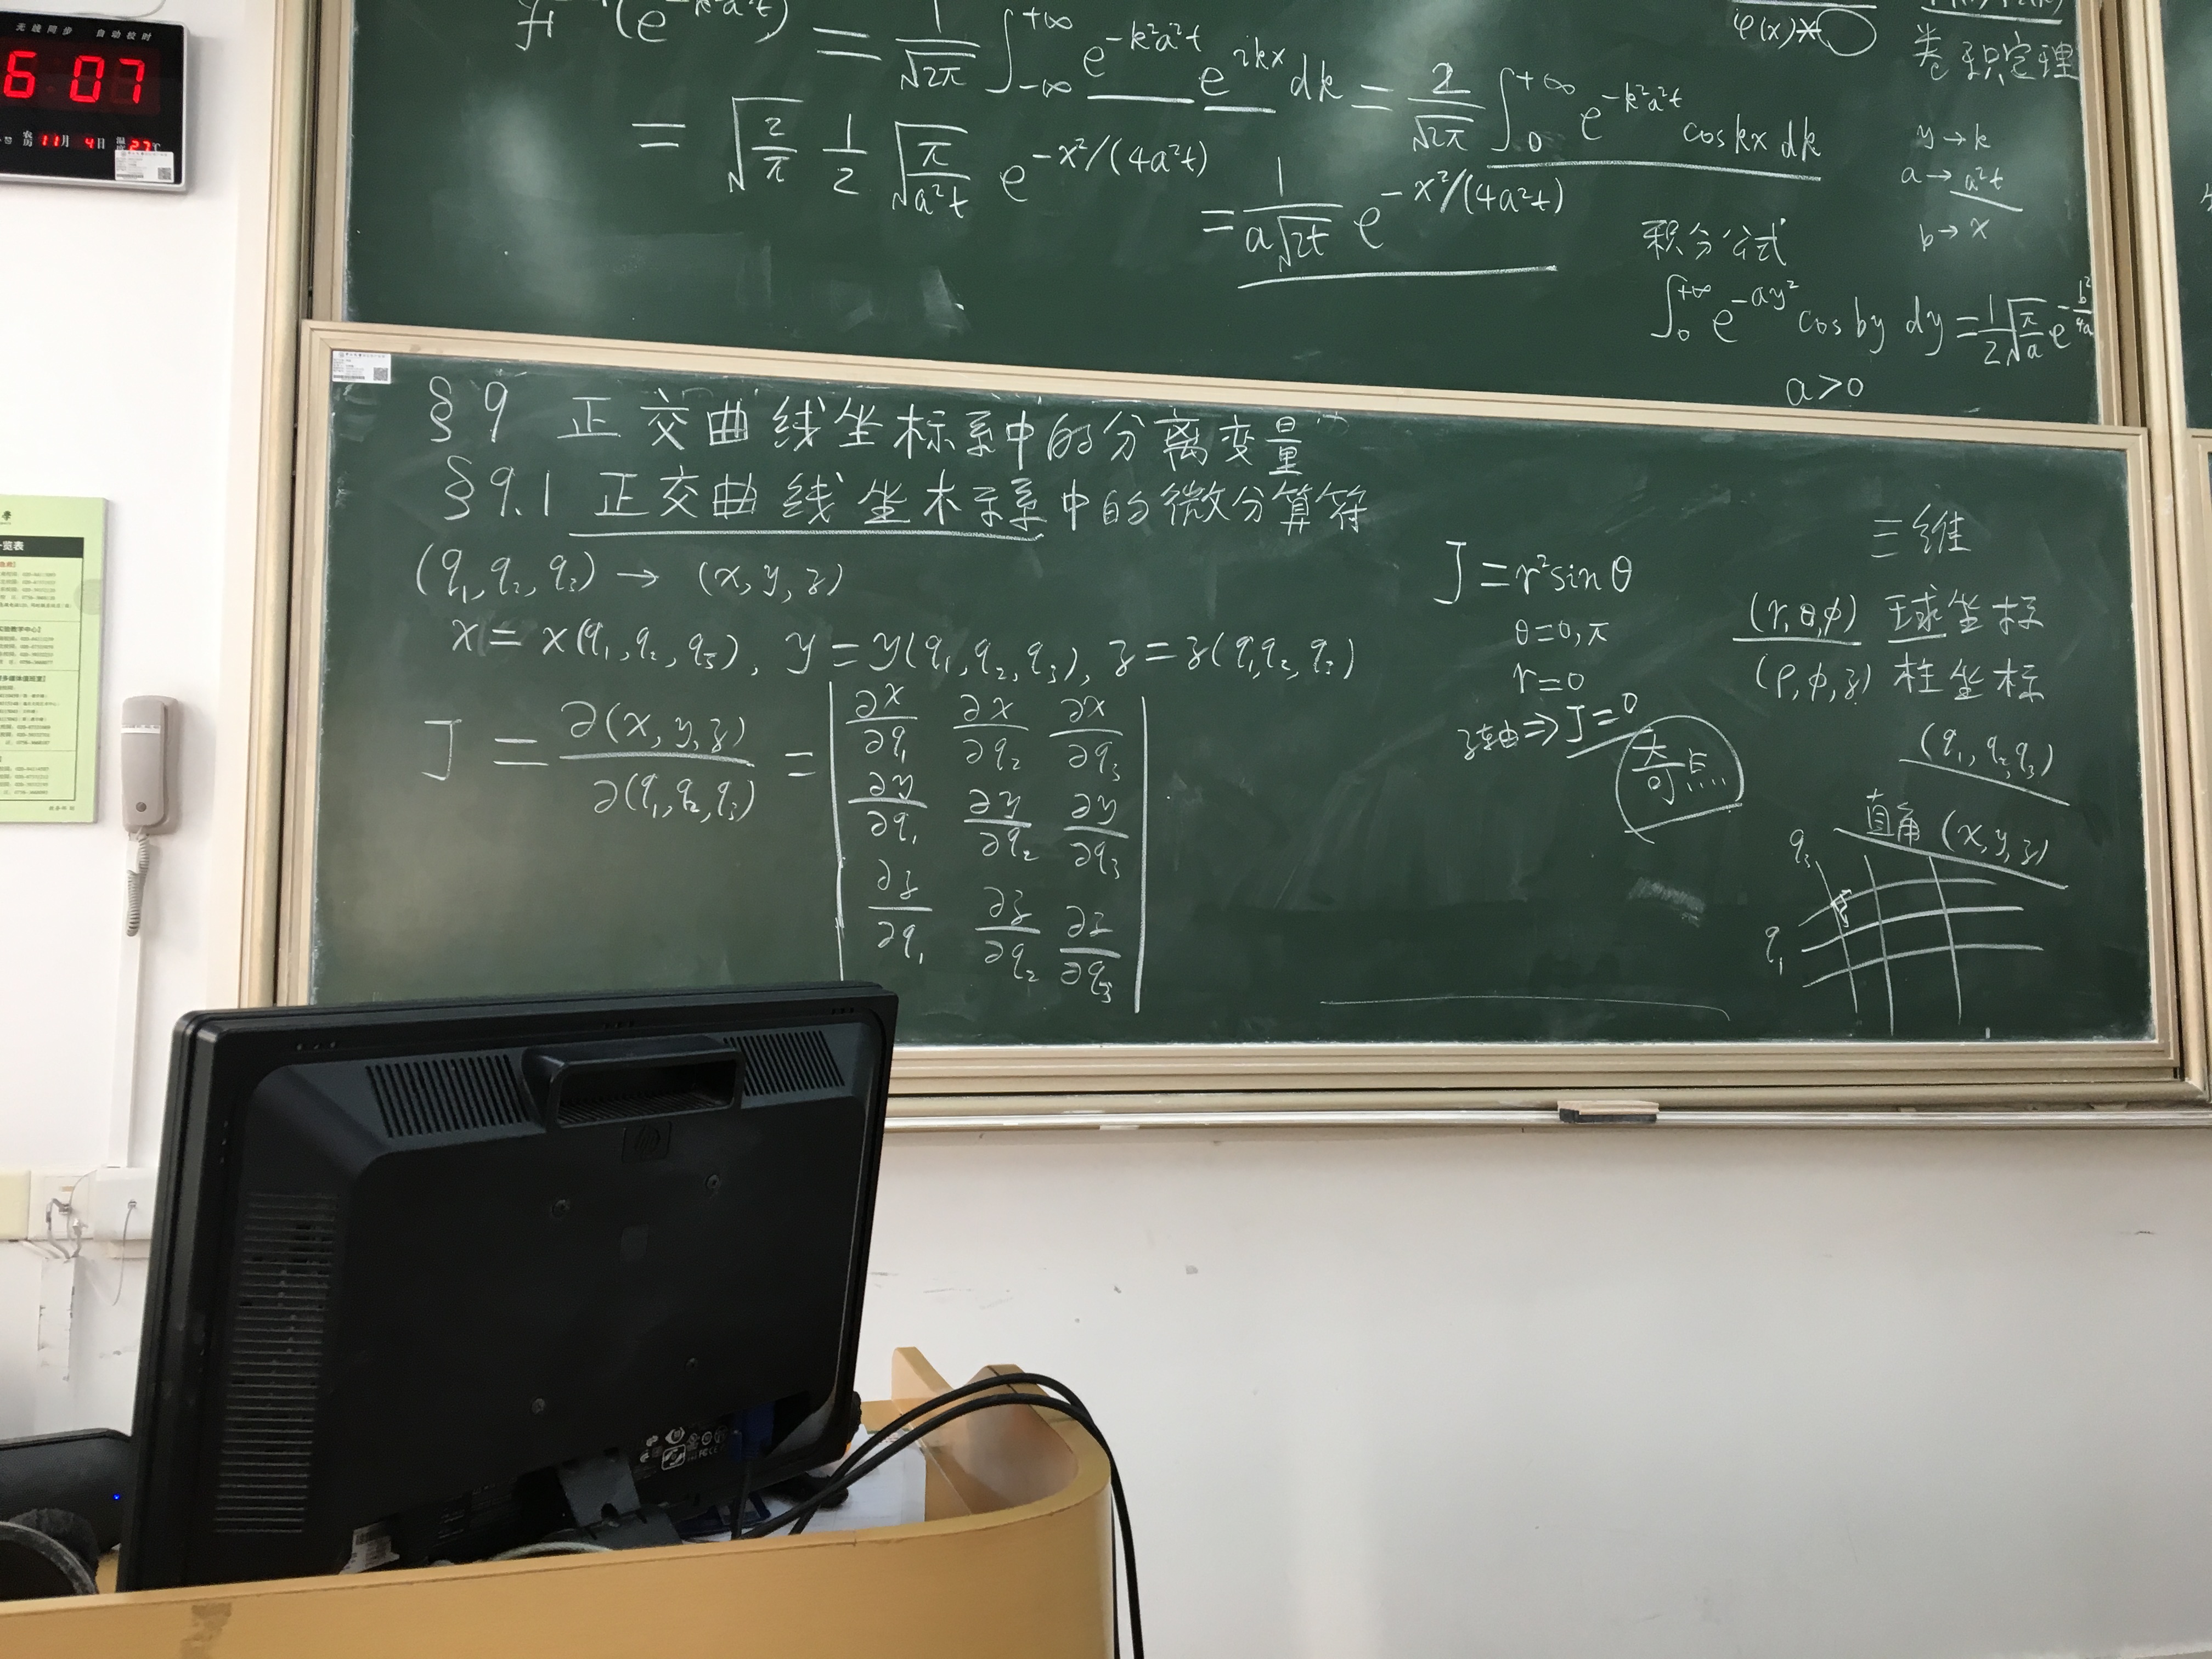 无线同步 自动校时
6 07
农历 11月 4日 温度 27℃
一览表
(e^{-k²a²t}) = 1/√(2π) ∫_{-∞}^{+∞} e^{-k²a²t} e^{ikx} dk = 2/√(2π) ∫_0^{+∞} e^{-k²a²t} cos kx dk
= √(2/π) 1/2 √(π/(a²t)) e^{-x²/(4a²t)}
= 1/(a√(2t)) e^{-x²/(4a²t)}
φ(x)*
卷积定理
y → k
a → a²t
b → x
积分公式
∫_0^{+∞} e^{-ay²} cos by dy = 1/2 √(π/a) e^{-b²/4a}
a>0
§9 正交曲线坐标系中的分离变量
§9.1 正交曲线坐标系中的微分算符
(q₁, q₂, q₃) → (x, y, z)
x = x(q₁, q₂, q₃), y = y(q₁, q₂, q₃), z = z(q₁, q₂, q₃)
J = ∂(x, y, z)/∂(q₁, q₂, q₃) = | ∂x/∂q₁ ∂x/∂q₂ ∂x/∂q₃
∂y/∂q₁ ∂y/∂q₂ ∂y/∂q₃
∂z/∂q₁ ∂z/∂q₂ ∂z/∂q₃ |
J = r² sin θ
θ = 0, π
r = 0
z轴 ⇒ J = 0
奇点
三维
(r, θ, φ) 球坐标
(ρ, φ, z) 柱坐标
(q₁, q₂, q₃)
直角 (x, y, z)
q₃
q₁
hp